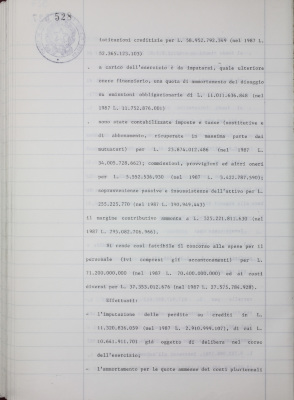 528
istituzioni creditizie per L. 58.952.742.369 (nel 1987 L.
52.565.123.105)
- a carico dell'esercizio è da imputarsi, quale ulteriore
onere finanziario, una quota di ammortamento del disaggio
da emissioni obbligazionarie di L. 11.011.636.868 (nel
1987 L. 11.751.876.081)
- sono state contabilizzate imposte e tasse (sostitutiva e
di abbonamento, ricuperate in massima parte dai
mutuatari) per L. 25.674.017.486 (nel 1987 L.
34.005.728.662); commissioni, provvigioni ed altri oneri
per L. 5.592.536.930 (nel 1987 L.
sopravvenienze passive e insussistenze dell'attivo per L.
255.225.770 (nel 1987 L. 395.969.663)
Il margine contributivo ammonta a L. 325.221.811.630 (nel
1987 L. 295.082.706.966).
Si rende così fattibile il concorso alle spese per il
personale (ivi compresi gli accantonamenti) per L.
71.250.000.000 (nel 1987 L. 70.400.000.000) ed ai costi
diversi per L. 37.353.012.676 (nel 1987 L. 27.571.704.928).
Effettuati:
- l'imputazione delle perdite su crediti in L.
11.500.836.059 (nel 1987 L. 2.910.994.107), di cui L.
10.641.911.701 già oggetto di delibera nel corso
dell'esercizio;
- l'ammortamento per le quote annuali dei costi pluriennali